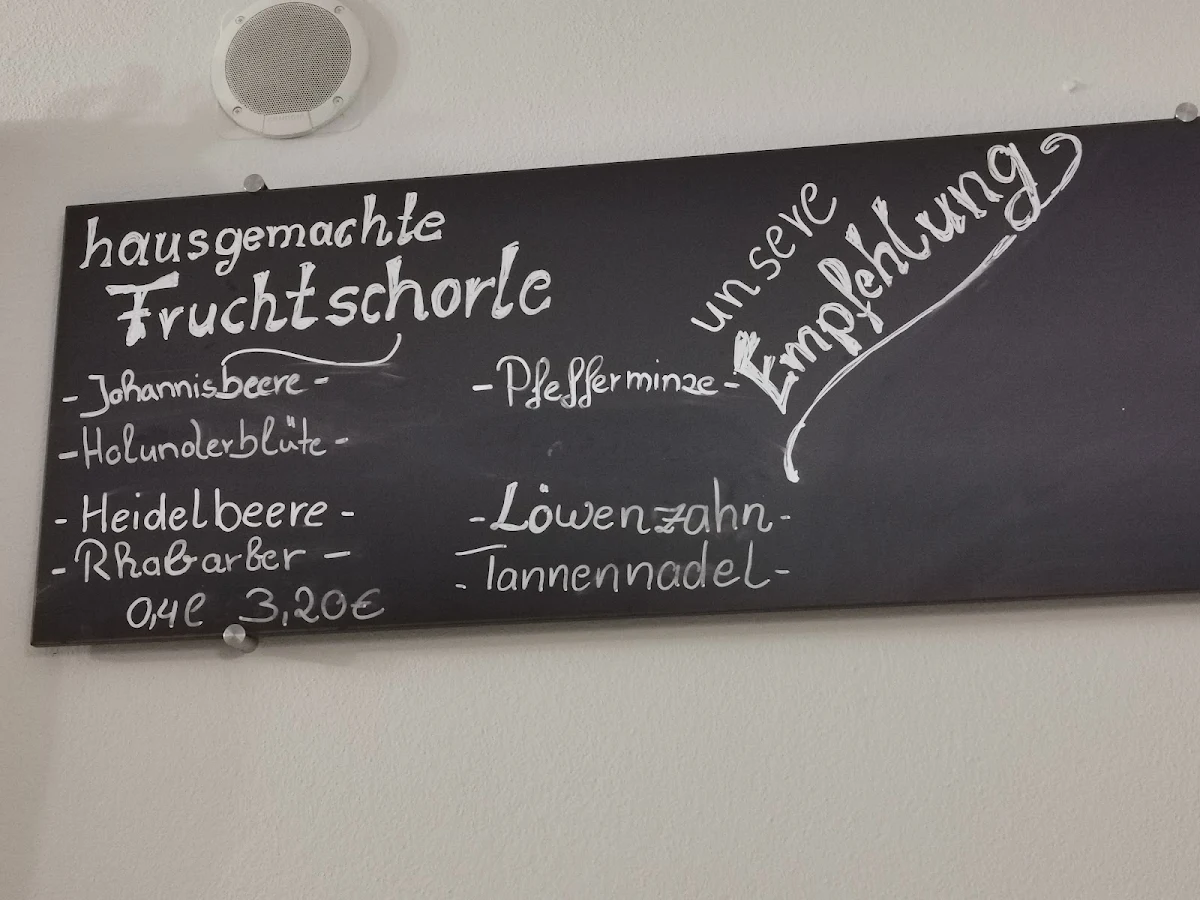 hausgemachte
Fruchtschorle
- Johannisbeere -
- Holunderblüte -
- Heidelbeere -
- Rhabarber -
0,4l 3,20€
- Pfefferminze -
- Löwenzahn -
- Tannennadel -
unsere
Empfehlung